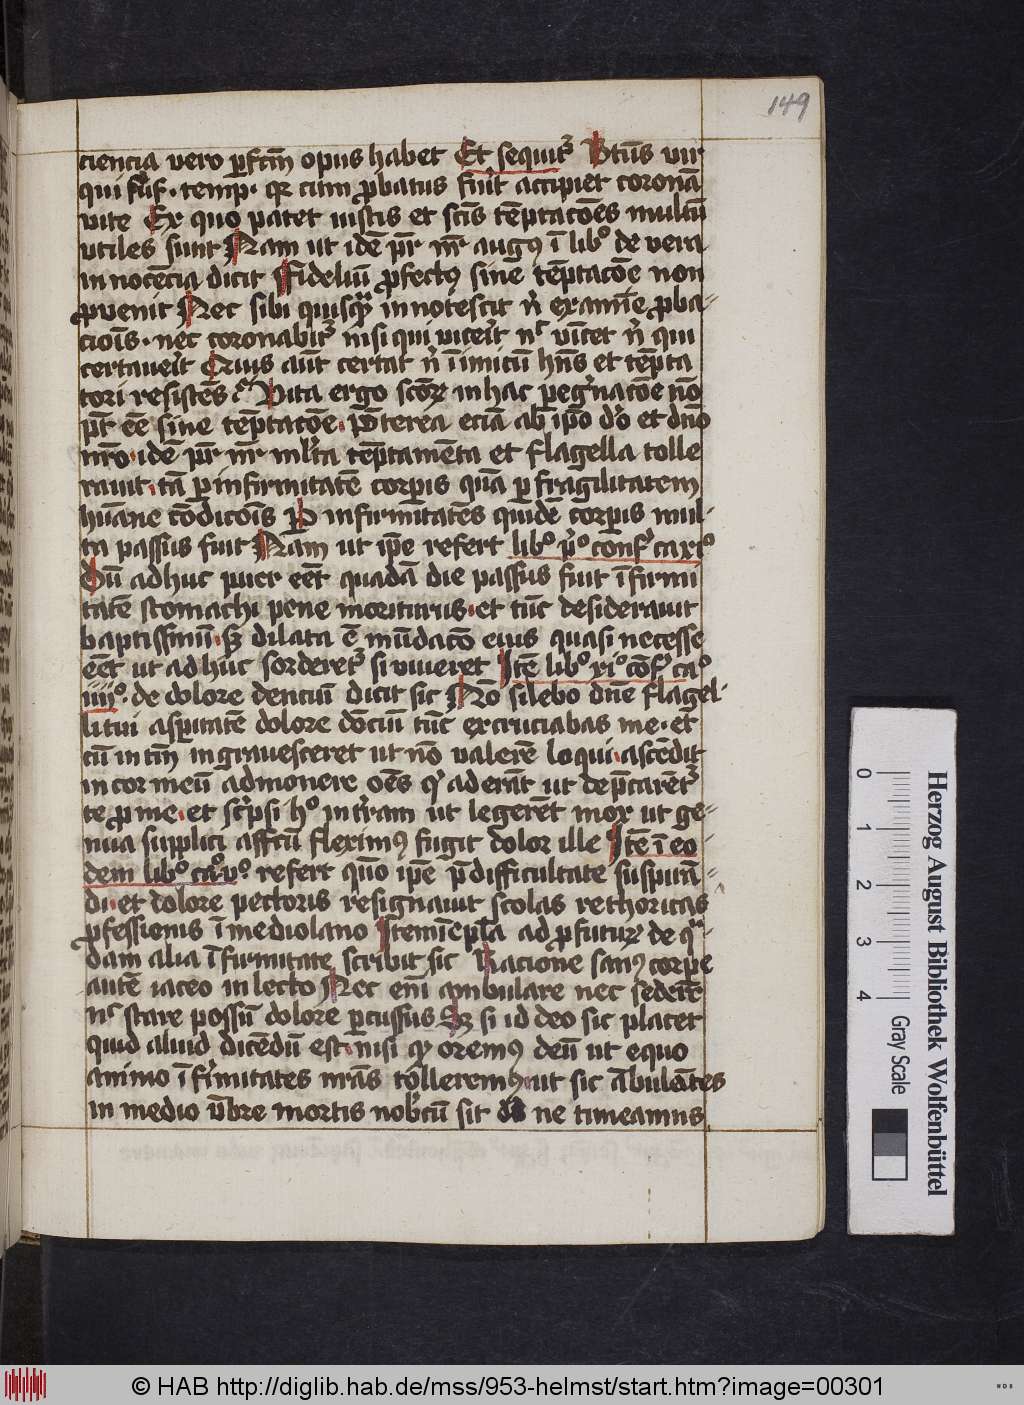 149
ciencia vero p̱fcm̄ opus habet Et sequit᷑ Btūs vir
qui suf͛ · temp · qr cum ꝓbatus fuit͛ accipiet coronā
vite Ex quo patet iustis et scīs tēptacōēs multū
vtiles sunt Nam ut idē pr̄ nr̄ augꝰ ī libͦ de vera
innocēcia dicit Ffideliū ꝓfectꝰ sine tēptacōe non
ꝓuenit Nec sibi quisqꝫ innotescit n̄ examīe ꝓba-
cioīs · nec coronabit᷑ nisi qui vicer͛it nͨ vīcet n̄ qui
certauer͛it Cuius aūt certat n̄ īimicū hn̄s et tēpta
tori resistēs Vita ergo scōꝝ in hac peg͛nacōe nō
pt̄ eē sine tēptacōe · Pͦterea eciā ab ip̄o dō et dn̄o
nr̄o · idē pr̄ nr̄ ml͛ta tēptamēta et flagella tolle
rauit · tā ꝑ infirmitatē corꝑis quā ꝑ fragilitatem
hūane cōdicoīs P infirmitatēs quidē corꝑis mul-
ta passus fuit Nam ut ip̄e refert libͦ pͦ cōnf͛ ca xiͦ
Cū adhuc puer eēt quadā die passus fuit īfirmi
tatē stomachi pene moriturus · et tūc desiderauit
baptissimū · sꝫ dilata ē mūdacō eius quasi necesse
eēt ut adhuc sorderet᷑ si viueret Itē libͦ xiͦ cōf͛ caͦ
iiiiͦ · de dolore denciū dicit sic Nō silebo dn̄e flagel-
li tui asꝑitatē dolore dēciū tūc excruciabas me · et
cū in tm̄ ingravesceret ut nō valerē loqui · ascēdit
in cor meū admonere oēs qͥ aderāt ut dep̄carēt᷑
te ꝓ me · et sc͛psi hͦ in c͛ram ut legerēt mox ut ge-
nua supplici affcū fleximꝰ fugit dolor ille Itē ī eo
dem libͦ caͦ vͦ refert quō ip̄e p̄ difficultate suspirā-
di · et dolore pectoris resignauit scolas rethoricas
ꝓfessionis ī mediolano Item ī epl̄a ad ꝓfuturꝝ de qͣ-
dam alia īfirmitate scribit sic Racione sanꝰ corꝑe
autē iaceo in lecto Nec enī ambulare nec seder͛e
nͨ stare possū dolore ꝑcussus Sꝫ si id deo sic placet
quid aliud dicēdū est · nisi qꝫ oremꝰ deū ut equo
animo īfirmitates nr̄as tolleremꝰ · ut sic ābulātes
in medio vmbre mortis nobͨcū sit ne timeamus
Herzog August Bibliothek Wolfenbüttel
0 1 2 3 4 Gray Scale
© HAB http://diglib.hab.de/mss/953-helmst/start.htm?image=00301